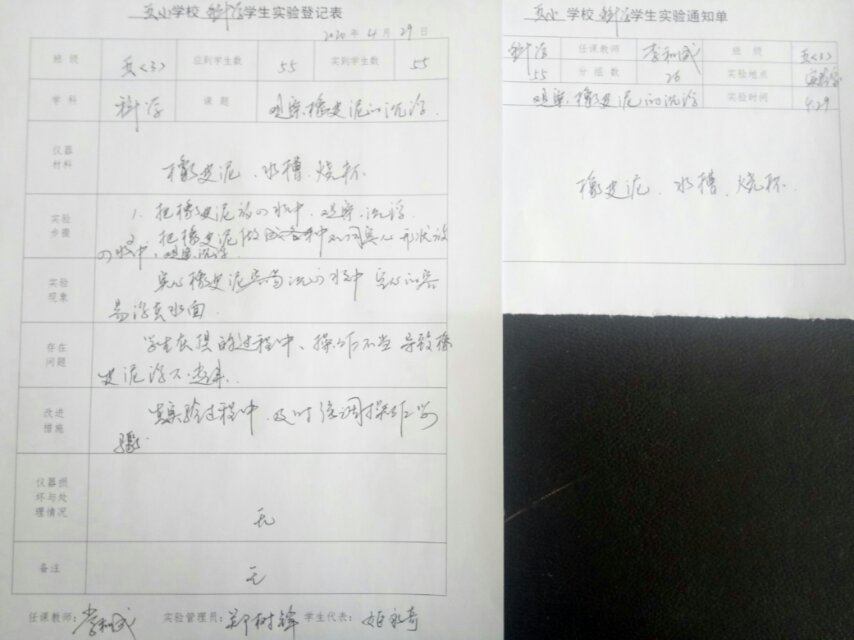 小学校 科学学生实验登记表
2020年4月29日
班级 五(3) 应到学生数 55 实到学生数 55
学科 科学 课题 观察橡皮泥的沉浮
仪器材料 橡皮泥、水槽、烧杯
实验步骤 1. 把橡皮泥放入水中,观察沉浮
2. 把橡皮泥做成各种不同实心形状放
入水中,观察沉浮
实验现象 实心橡皮泥容易沉入水中 空心的容
易浮在水面
存在问题 学生在捏的过程中、操作不当导致橡
皮泥浮不起来
改进措施 实验过程中,及时强调操作步
骤
仪器损坏与处理情况 无
备注 无
任课教师: 李和成 实验管理员: 郑树锋 学生代表:
小学校 科学学生实验通知单
科学 任课教师 李和成 班级 五(3)
55 分组数 26 实验地点 实验室
观察橡皮泥的沉浮 实验时间 4.29
橡皮泥、水槽、烧杯